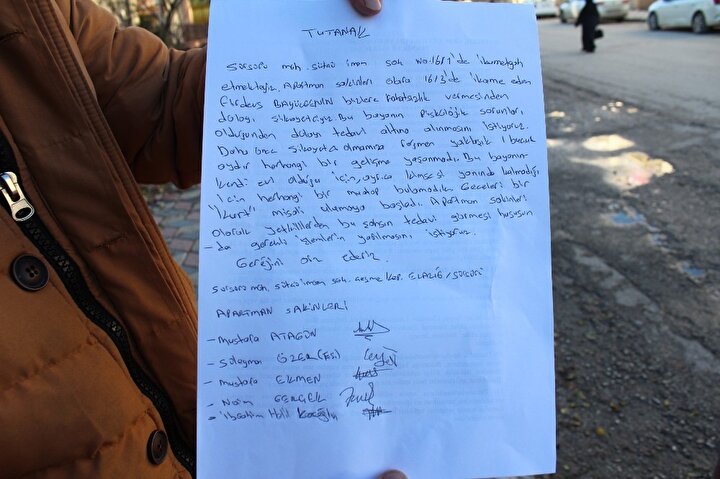 TUTANAK
Sürsürü mah. sütcü imam sok no:16/1'de ikametgah
etmekteyiz. Apartman sakinleri olara 16/3'de ikame eden
Firdevs in bizlere rahatsızlık vermesinden
dolayı şikayetciyiz. Bu bayanın Piskolojik sorunları
olduğundan dolayı tedavi altına alınmasını istiyoruz.
Daha önce şikayetci olmamıza rağmen yaklaşık 1 bucuk
aydır herhangi bir gelişme yaşanmadı. Bu bayanın
kendi evi olduğu için, ayrıca kimsesi yanında kalmadığı
için herhangi bir muatap bulamadık. Geceleri bir
"Kurt" misali ulumaya başladı. Apartman sakinleri
olarak yetkililerden bu şahsın tedavi görmesi husussun
-da gerekli işlemlerin yapılmasını istiyoruz.
Gereğini arz ederiz.
Sürsürü mah. sütcü imam sok. çeşme kar. ELAZIĞ/SÜRSÜRÜ
APARTMAN SAKİNLERİ
- Mustafa ATAGÜN
- Süleyman ÖZER(Eşi)
- Mustafa EKMEN
- Naim GERGEK
- İbrahim Halil